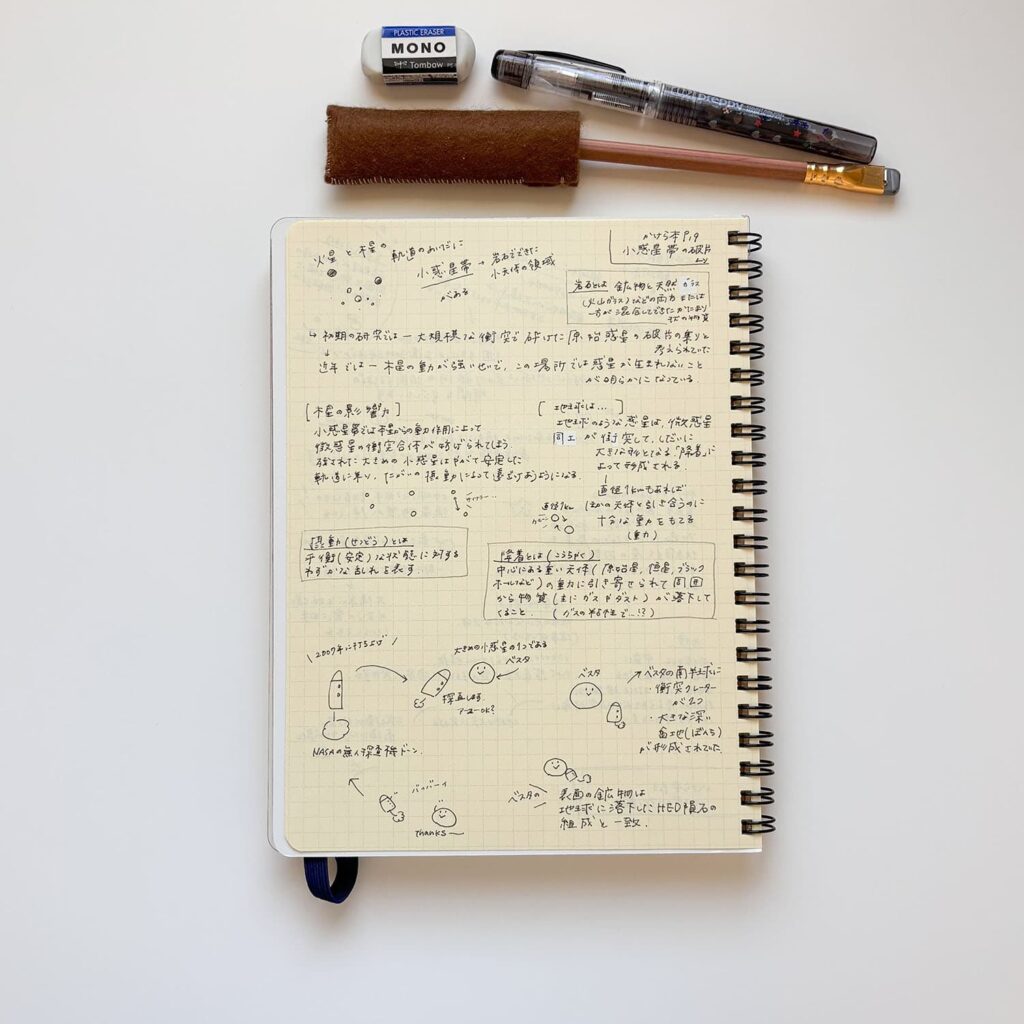 PLASTIC ERASER
MONO
Tombow
Preppy
かけら本 P.19
小惑星帯の破片
より
火星と木星の軌道のあいだに
小惑星帯→岩石でできた
小天体の領域
がある
岩石とは 鉱物と天然ガラス
(火山ガラス)などの両方または
一方が混合してできたかたまり
状の物質
↳初期の研究では→大規模な衝突で砕けた原始惑星の破片の集りと
考えられていた
↓
近年では→木星の重力が強いせいで、この場所では惑星が生まれないこと
が明らかになっている.
[木星の影響力]
小惑星帯では木星からの重力作用によって
微惑星の衝突合体が妨げられてしまう.
残された大きめの小惑星はやがて安定した
軌道に乗り、たがいの摂動によって
[地球は…]
地球のような惑星は、微惑星
同士が衝突して、しだいに
大きな形となる「降着」に
よって形成される.
↓
直径1kmもあれば
ほかの天体と引き合うのに
十分な重力をもてる
(重力)
直径1km
摂動(せつどう)とは
平衡(安定)な状態に対する
わずかな乱れを表す.
降着とは(こうちゃく)
中心にある重い天体(原始星、恒星、ブラック
ホールなど)の重力に引き寄せられて周囲
から物質(主にガスやダスト)が落下して
くること. (ガスの粘性で…!?)
\2007年に打ち上げ/
NASAの無人探査機ドーン.
大きめの小惑星の1つである
ベスタ
探査します
ベスタ
↗ベスタの南半球に
衝突クレーター
が2つ
・大きな深い
盆地(ぼんち)
が形成されていた.
バイバーイ
thanks—
ベスタの
表面の鉱物は
地球に落下したHED隕石の
組成と一致.